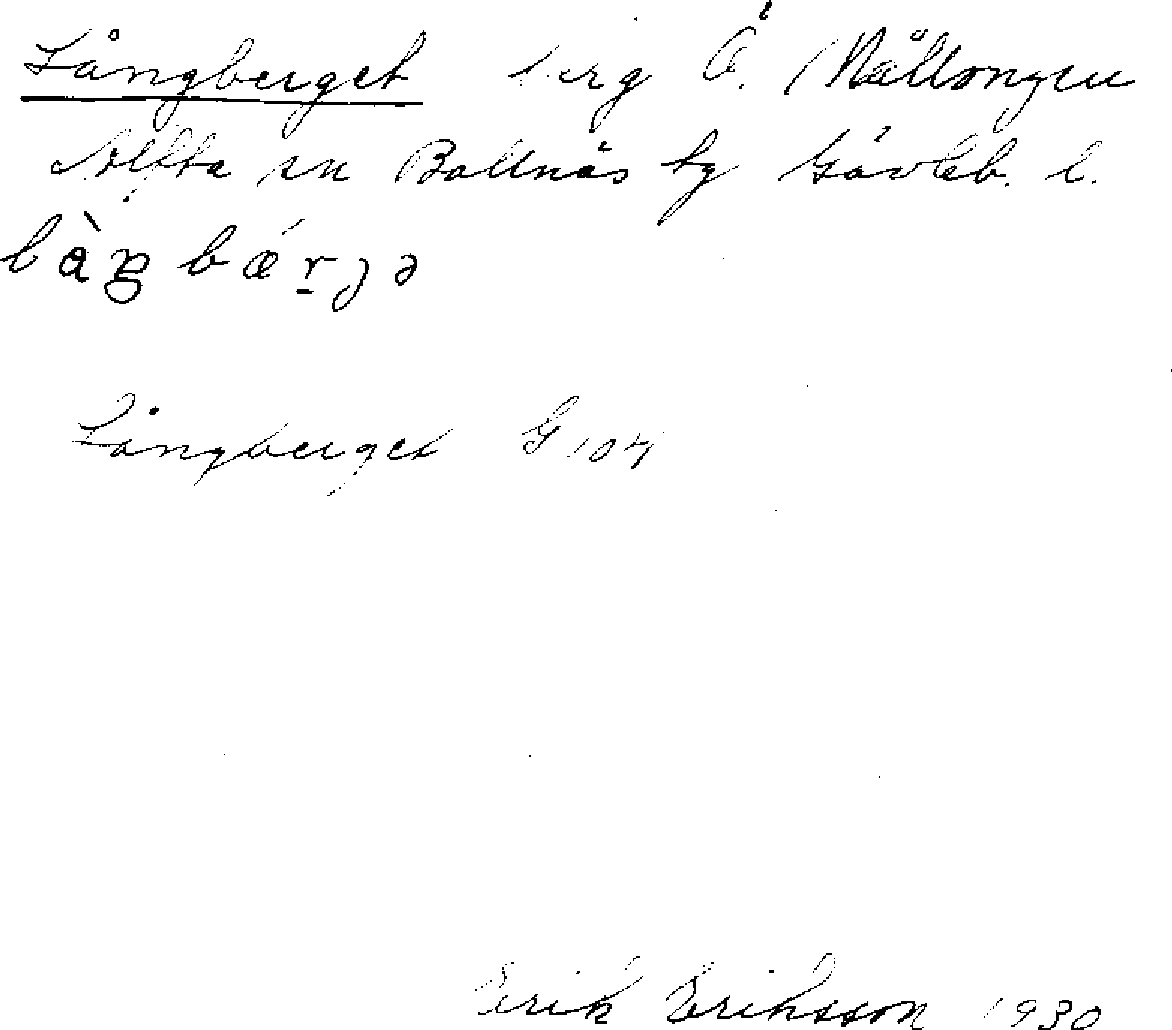 Långberget berg Å. (Mållongen
Alfta sn Bollnäs tg Gävleb. l.
làŋbǽrjə
Långberget G 104
Erik Eriksson 1930